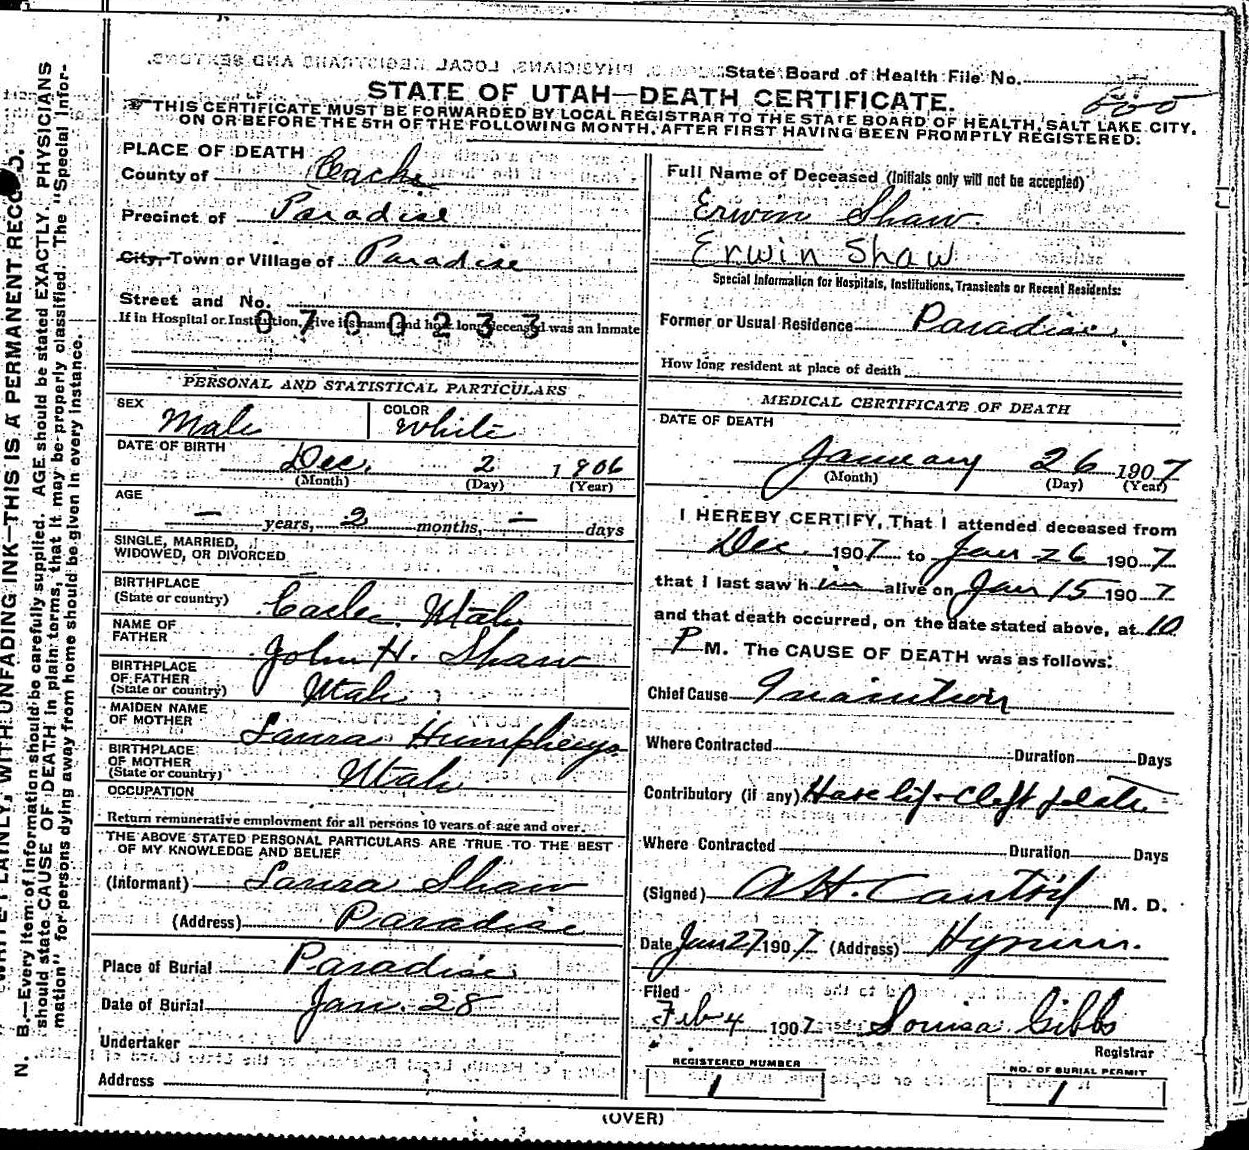 State Board of Health File No.
600
STATE OF UTAH—DEATH CERTIFICATE.
THIS CERTIFICATE MUST BE FORWARDED BY LOCAL REGISTRAR TO THE STATE BOARD OF HEALTH, SALT LAKE CITY,
ON OR BEFORE THE 5TH OF THE FOLLOWING MONTH, AFTER FIRST HAVING BEEN PROMPTLY REGISTERED.
PLACE OF DEATH
County of Cache
Precinct of Paradise
City, Town or Village of Paradise
Street and No.
0700233
If in Hospital or Institution, give its name and how long deceased was an Inmate
PERSONAL AND STATISTICAL PARTICULARS
SEX Male COLOR White
DATE OF BIRTH
Dec. 2 1906
(Month) (Day) (Year)
AGE
— years, 2 months, — days
SINGLE, MARRIED,
WIDOWED, OR DIVORCED
BIRTHPLACE
(State or country) Cache Utah
NAME OF
FATHER John H. Shaw
BIRTHPLACE
OF FATHER
(State or country) Utah
MAIDEN NAME
OF MOTHER Laura Humpherys
BIRTHPLACE
OF MOTHER
(State or country) Utah
OCCUPATION
Return remunerative employment for all persons 10 years of age and over.
THE ABOVE STATED PERSONAL PARTICULARS ARE TRUE TO THE BEST
OF MY KNOWLEDGE AND BELIEF
(Informant) Laura Shaw
(Address) Paradise
Place of Burial Paradise
Date of Burial Jan. 28
Undertaker
Address
Full Name of Deceased (Initials only will not be accepted)
Erwin Shaw
Erwin Shaw
Special Information for Hospitals, Institutions, Transients or Recent Residents:
Former or Usual Residence Paradise.
How long resident at place of death
MEDICAL CERTIFICATE OF DEATH
DATE OF DEATH
January 26 1907
(Month) (Day) (Year)
I HEREBY CERTIFY, That I attended deceased from
Dec. 1907 to Jan 26 1907
that I last saw him alive on Jan 15 1907
and that death occurred, on the date stated above, at 10
P M. The CAUSE OF DEATH was as follows:
Chief Cause Inanition
Where Contracted Duration Days
Contributory (if any) Hare lip + Cleft palate
Where Contracted Duration Days
(Signed) M. D.
Date Jan 27 1907 (Address) Hyrum.
Filed
Feb 4 1907 Louisa Gibbs
Registrar
REGISTERED NUMBER
1
NO. OF BURIAL PERMIT
1
(OVER)
WRITE PLAINLY, WITH UNFADING INK—THIS IS A PERMANENT RECORD.
N. B.—Every item of information should be carefully supplied. AGE should be stated EXACTLY. PHYSICIANS
should state CAUSE OF DEATH in plain terms, that it may be properly classified. The "Special Infor-
mation" for persons dying away from home should be given in every instance.